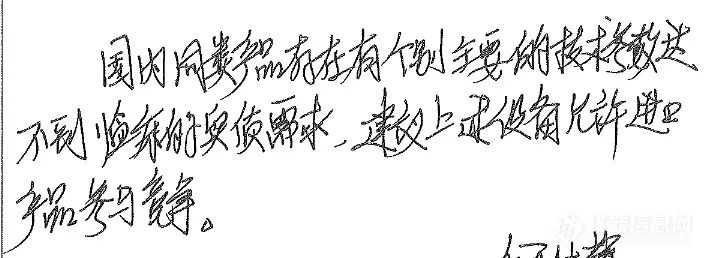 国内同类产品存在有个别主要的技术参数达
不到临床的实质需求,建议上述设备允许进口
产品参与竞争。
仪器信息网